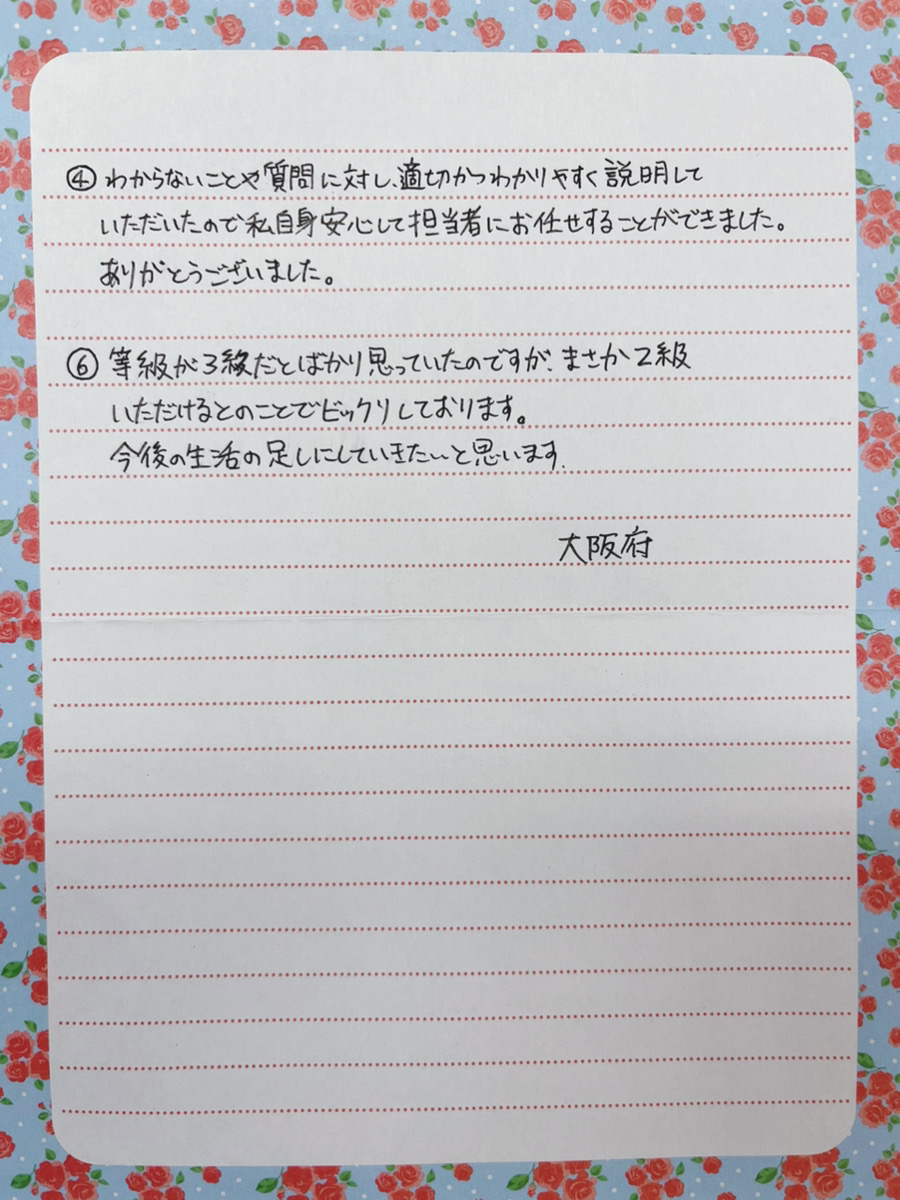 ④ わからないことや質問に対し、適切かつわかりやすく説明して
いただいたので私自身安心して担当者にお任せすることができました。
ありがとうございました。
⑥ 等級が3級だとばかり思っていたのですが、まさか2級
いただけるとのことでビックリしております。
今後の生活の足しにしていきたいと思います.
大阪府